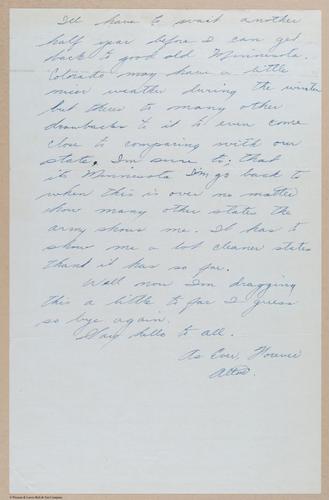 I'll have to wait another
half year before I can get
back to good old Minnesota.
Colorado may have a little
nicer weather during the winter
but theirs to many other
drawbacks to it to even come
close to comparing with our
state. I'm sure to; that
its Minnesota I'm go back to
when this is over no matter
how many other states the
army shows me. It has to
show me a lot cleaner states
than it has so far.
Well now I'm dragging
this a little to far I guess
so bye again.
Say hello to all.
As Ever,